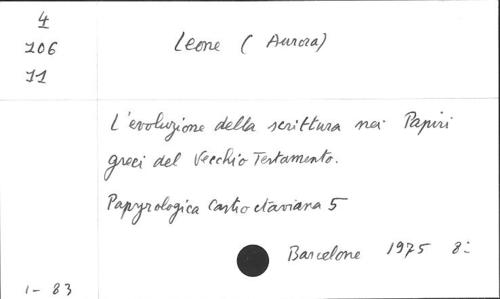 4
106
11
Leone ( Aurora)
L'evoluzione della scrittura nei Papiri
greci del Vecchio Testamento.
Papyrologica Castroctaviana 5
Barcelone 1975 8:
1- 83